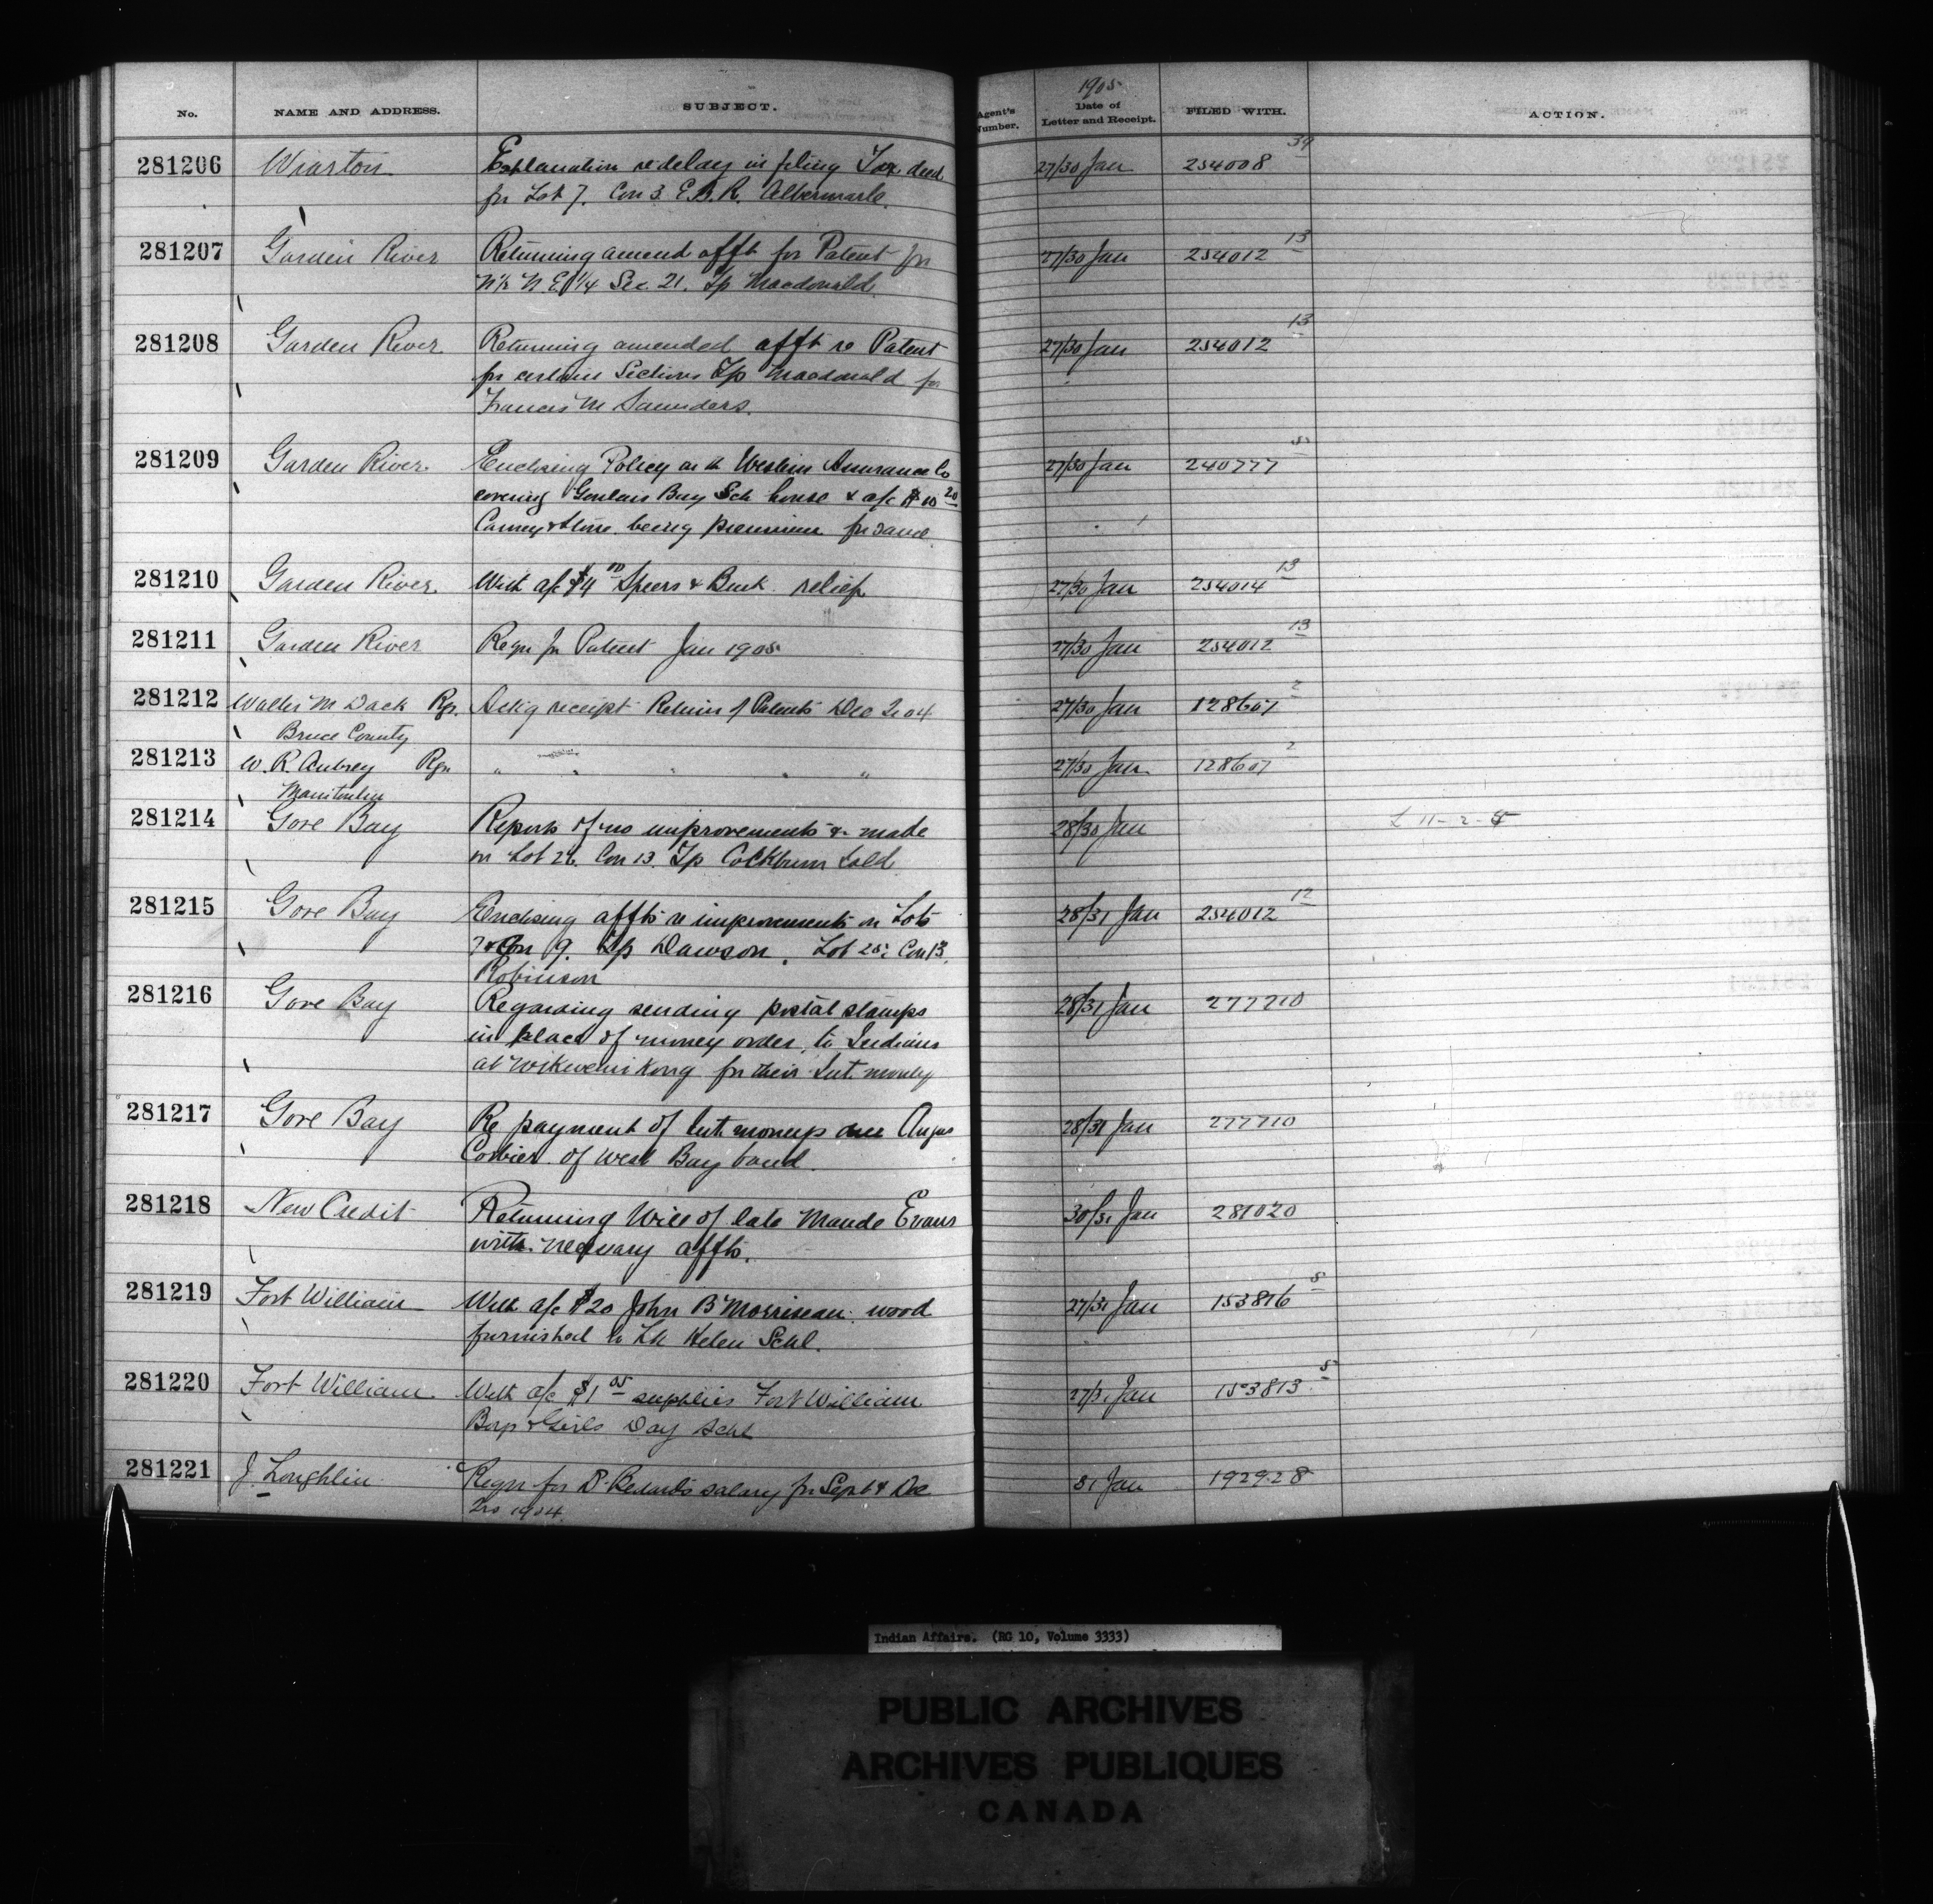 No. NAME AND ADDRESS. SUBJECT. Agent's Number. 1905 Date of Letter and Receipt. FILED WITH. ACTION.
281206 Wiarton Explanation re delay in filing Tax deed 27/30 Jan 254008 39
for Lot 7. Con 3 E.B.R. Albermarle.
281207 Garden River Returning amend afft for Patent for 27/30 Jan 254012 13
N½ N.E ¼ Sec. 21. Tp Macdonald
281208 Garden River Returning amended afft re Patent 27/30 Jan 254012 13
for certain Sections Tp Macdonald for
Francis M Saunders.
281209 Garden River. Enclosing Policy on the Western Assurance Co 27/30 Jan 240777 5
covering Goulais Bay Sch house & a/c $10 20
Carney & Stone being premium for same
281210 Garden River. With a/c $4 00 Speers & Buck relief 27/30 Jan 254014 13
281211 Garden River Reqn for Patent Jan 1905 27/30 Jan 254012 13
281212 Walter M Dack Rgr. Ackg receipt Return of Patents Dec 2r 04 27/30 Jan 128607 2
Bruce County
281213 W. R. Aubrey Rgr " " " " " 27/30 Jan 128607 2
Manitoulin
281214 Gore Bay Reports of no improvements & made 28/30 Jan L 11-2-5
on Lot 26. Con 13. Tp Cockburn Isld
281215 Gore Bay Enclosing affts re improvements on Lots 28/31 Jan 254012 12
7 & Con 9. Tp Dawson. Lot 25: Con 13.
Robinson
281216 Gore Bay Regarding sending postal stamps 28/31 Jan 277710
in place of money order, to Indians
at Wikwemikong for their Int. money
281217 Gore Bay Re payment of Int. moneys due Angus 28/31 Jan 277710
Corbier of West Bay band.
281218 New Credit Returning Will of late Maude Evans 30/31 Jan 281020
with necessary affts.
281219 Fort William With a/c $20 John B Morriseau. wood 27/31 Jan 153816 5
furnished to Lk Helen Schl.
281220 Fort William. With a/c $1 05 supplies Fort William 27/31 Jan 153813 5
Boys & Girls Day Schl
281221 J Loughlin Reqn for salary for Sept & Dec 31 Jan 192928
2rs 1904.
Indian Affairs. (RG 10, Volume 3333)
PUBLIC ARCHIVES
ARCHIVES PUBLIQUES
CANADA